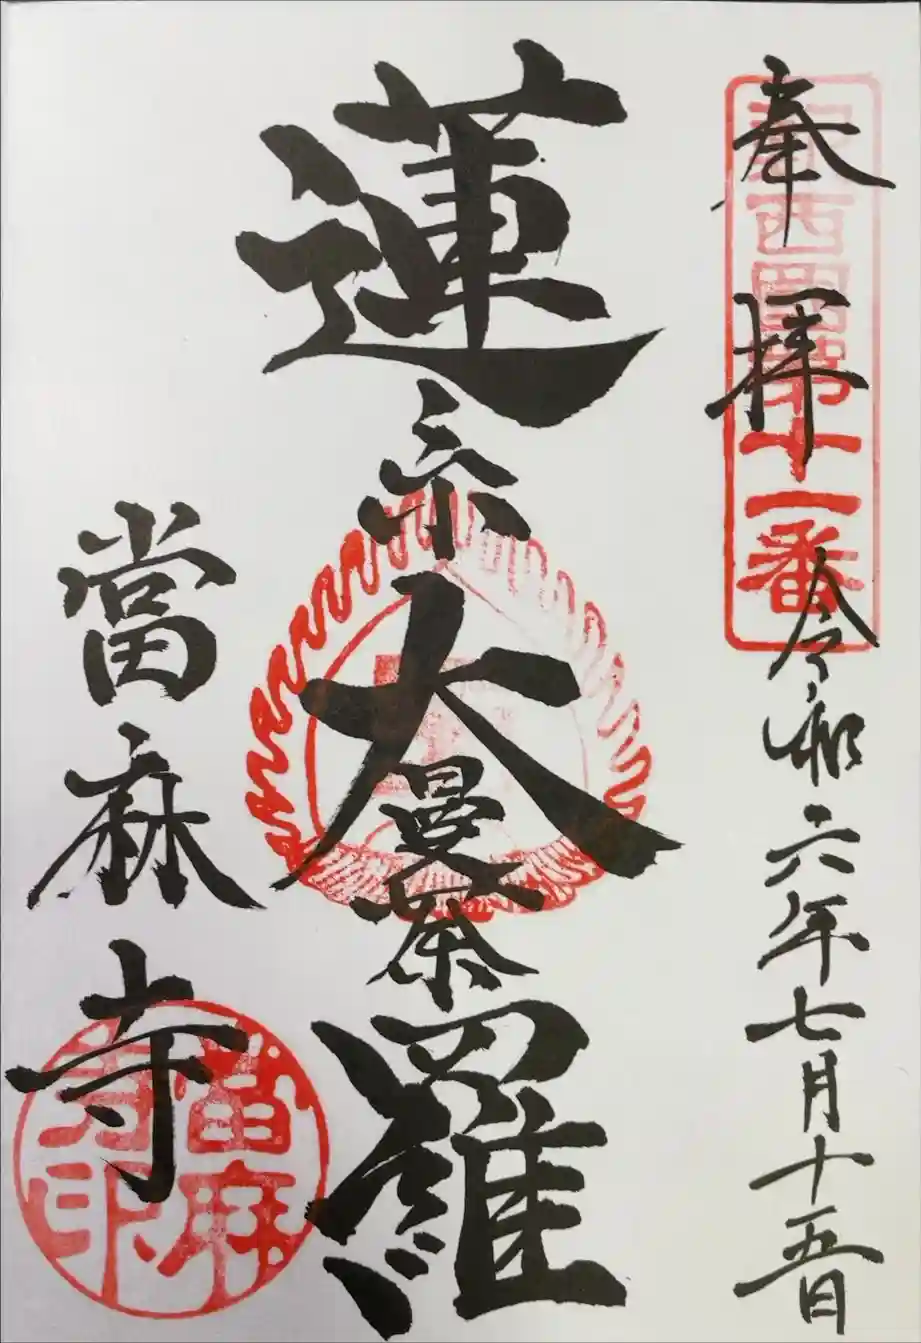 奉拝
新西國第十一番
令和六年七月十五日
蓮糸大曼荼羅
當麻寺
當麻寺印